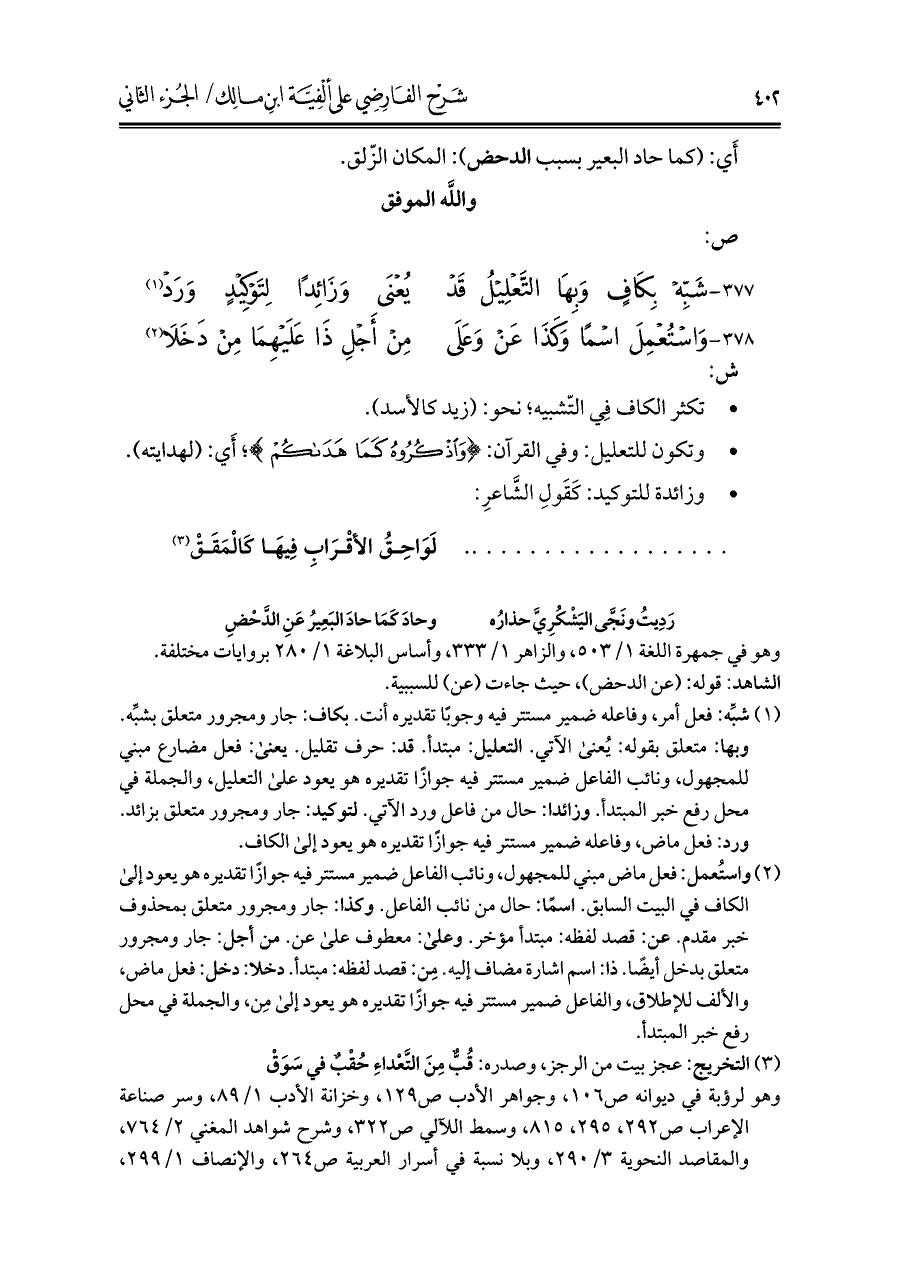 ٤٠٢ شَرْح الفَارِضِي على أَلْفِيَّة ابنِ مالِك/ الجُزء الثاني
أَي: (كما حاد البعير بسبب الدحض): المكان الزّلق.
واللَّه الموفق
ص:
٣٧٧-شَبِّهْ بِكَافٍ وَبِهَا التَّعْلِيْلُ قَدْ يُعْنَى وَزَائِدًا لِتَوْكِيْدٍ وَرَدْ(١)
٣٧٨-وَاسْتُعْمِلَ اسْمًا وَكَذَا عَنْ وَعَلَى مِنْ أَجْلِ ذَا عَلَيْهِمَا مِنْ دَخَلَا(٢)
ش:
• تكثر الكاف فِي التّشبيه؛ نحو: (زيد كالأسد).
• وتكون للتعليل: وفي القرآن: ﴿وَٱذْكُرُوهُ كَمَا هَدَىٰكُمْ﴾؛ أَي: (لهدايته).
• وزائدة للتوكيد: كَقَولِ الشَّاعرِ:
. . . . . . . . . . . . . . . . . . لَوَاحِقُ الأقْرَابِ فِيهَا كَالْمَقَقْ(٣)
رَدِيتُ ونَجَّى اليَشْكُرِيَّ حذارُه وحادَ كَمَا حادَ البَعِيرُ عَنِ الدَّحْضِ
وهو في جمهرة اللغة ١/ ٥٠٣، والزاهر ١/ ٣٣٣، وأساس البلاغة ١/ ٢٨٠ بروايات مختلفة.
الشاهد: قوله: (عن الدحض)، حيث جاءت (عن) للسببية.
(١) شبِّه: فعل أمر، وفاعله ضمير مستتر فيه وجوبًا تقديره أنت. بكاف: جار ومجرور متعلق بشبِّه.
وبها: متعلق بقوله: يُعنىٰ الآتي. التعليل: مبتدأ. قد: حرف تقليل. يعنىٰ: فعل مضارع مبني
للمجهول، ونائب الفاعل ضمير مستتر فيه جوازًا تقديره هو يعود علىٰ التعليل، والجملة في
محل رفع خبر المبتدأ. وزائدا: حال من فاعل ورد الآتي. لتوكيد: جار ومجرور متعلق بزائد.
ورد: فعل ماض، وفاعله ضمير مستتر فيه جوازًا تقديره هو يعود إلىٰ الكاف.
(٢) واستُعمل: فعل ماض مبني للمجهول، ونائب الفاعل ضمير مستتر فيه جوازًا تقديره هو يعود إلىٰ
الكاف في البيت السابق. اسمًا: حال من نائب الفاعل. وكذا: جار ومجرور متعلق بمحذوف
خبر مقدم. عن: قصد لفظه: مبتدأ مؤخر. وعلىٰ: معطوف علىٰ عن. من أجل: جار ومجرور
متعلق بدخل أيضًا. ذا: اسم اشارة مضاف إليه. مِن: قصد لفظه: مبتدأ. دخلا: دخل: فعل ماض،
والألف للإطلاق، والفاعل ضمير مستتر فيه جوازًا تقديره هو يعود إلىٰ مِن، والجملة في محل
رفع خبر المبتدأ.
(٣) التخريج: عجز بيت من الرجز، وصدره: قُبٌّ مِنَ التَّعْداءِ حُقْبٌ في سَوَقْ
وهو لرؤبة في ديوانه ص١٠٦، وجواهر الأدب ص١٢٩، وخزانة الأدب ١/ ٨٩، وسر صناعة
الإعراب ص٢٩٢، ٢٩٥، ٨١٥، وسمط اللآلي ص٣٢٢، وشرح شواهد المغني ٢/ ٧٦٤،
والمقاصد النحوية ٣/ ٢٩٠، وبلا نسبة في أسرار العربية ص٢٦٤، والإنصاف ١/ ٢٩٩،